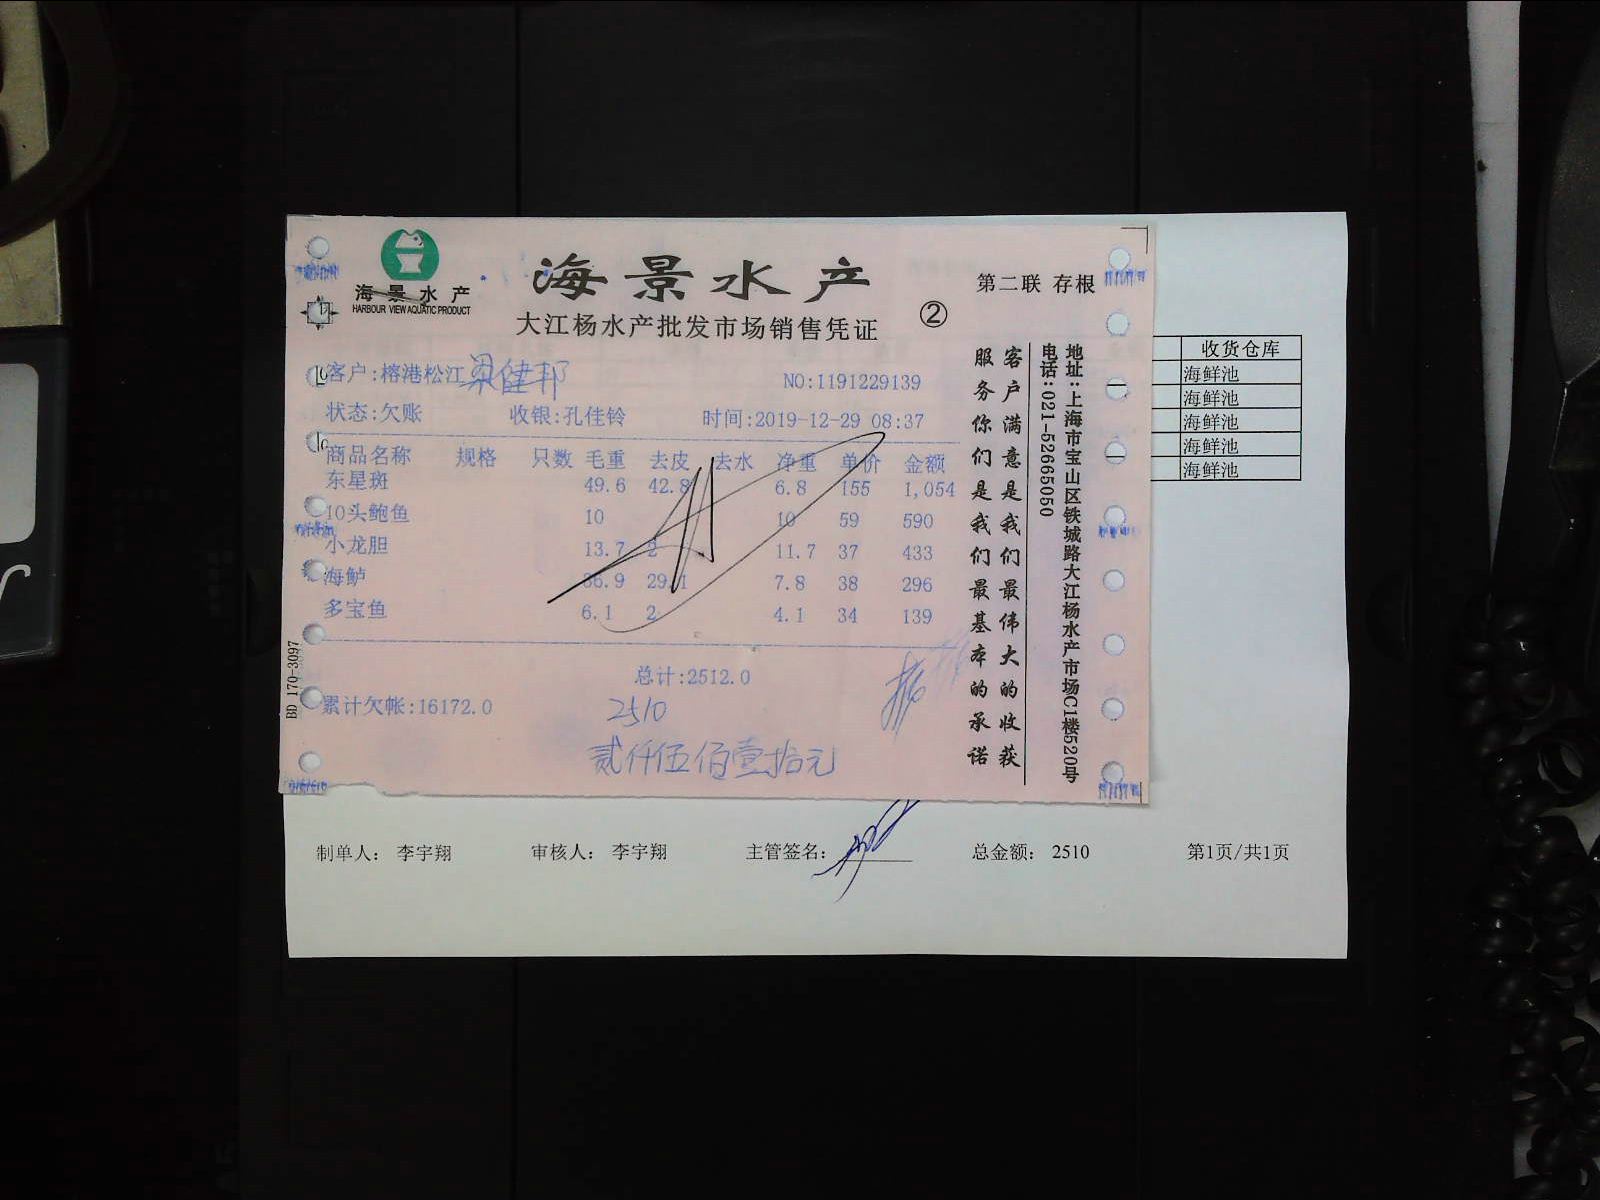 海景水产
HARBOUR VIEW AQUATIC PRODUCT
海景水产
大江杨水产批发市场销售凭证
②
第二联 存根
客户:榕港松江 梁健邦
NO:1191229139
状态:欠账 收银:孔佳铃 时间:2019-12-29 08:37
商品名称 规格 只数 毛重 去皮 去水 净重 单价 金额
东星斑 49.6 42.8 6.8 155 1,054
10头鲍鱼 10 10 59 590
小龙胆 13.7 2 11.7 37 433
海鲈 36.9 29.1 7.8 38 296
多宝鱼 6.1 2 4.1 34 139
总计:2512.0
累计欠帐:16172.0
2510
贰仟伍佰壹拾元
BD 170-3097
客户满意是我们最伟大的收获
服务你们是我们最基本的承诺
地址:上海市宝山区铁城路大江杨水产市场C1楼520号
电话:021-52665050
收货仓库
海鲜池
海鲜池
海鲜池
海鲜池
海鲜池
制单人: 李宇翔 审核人: 李宇翔 主管签名: 总金额: 2510 第1页/共1页